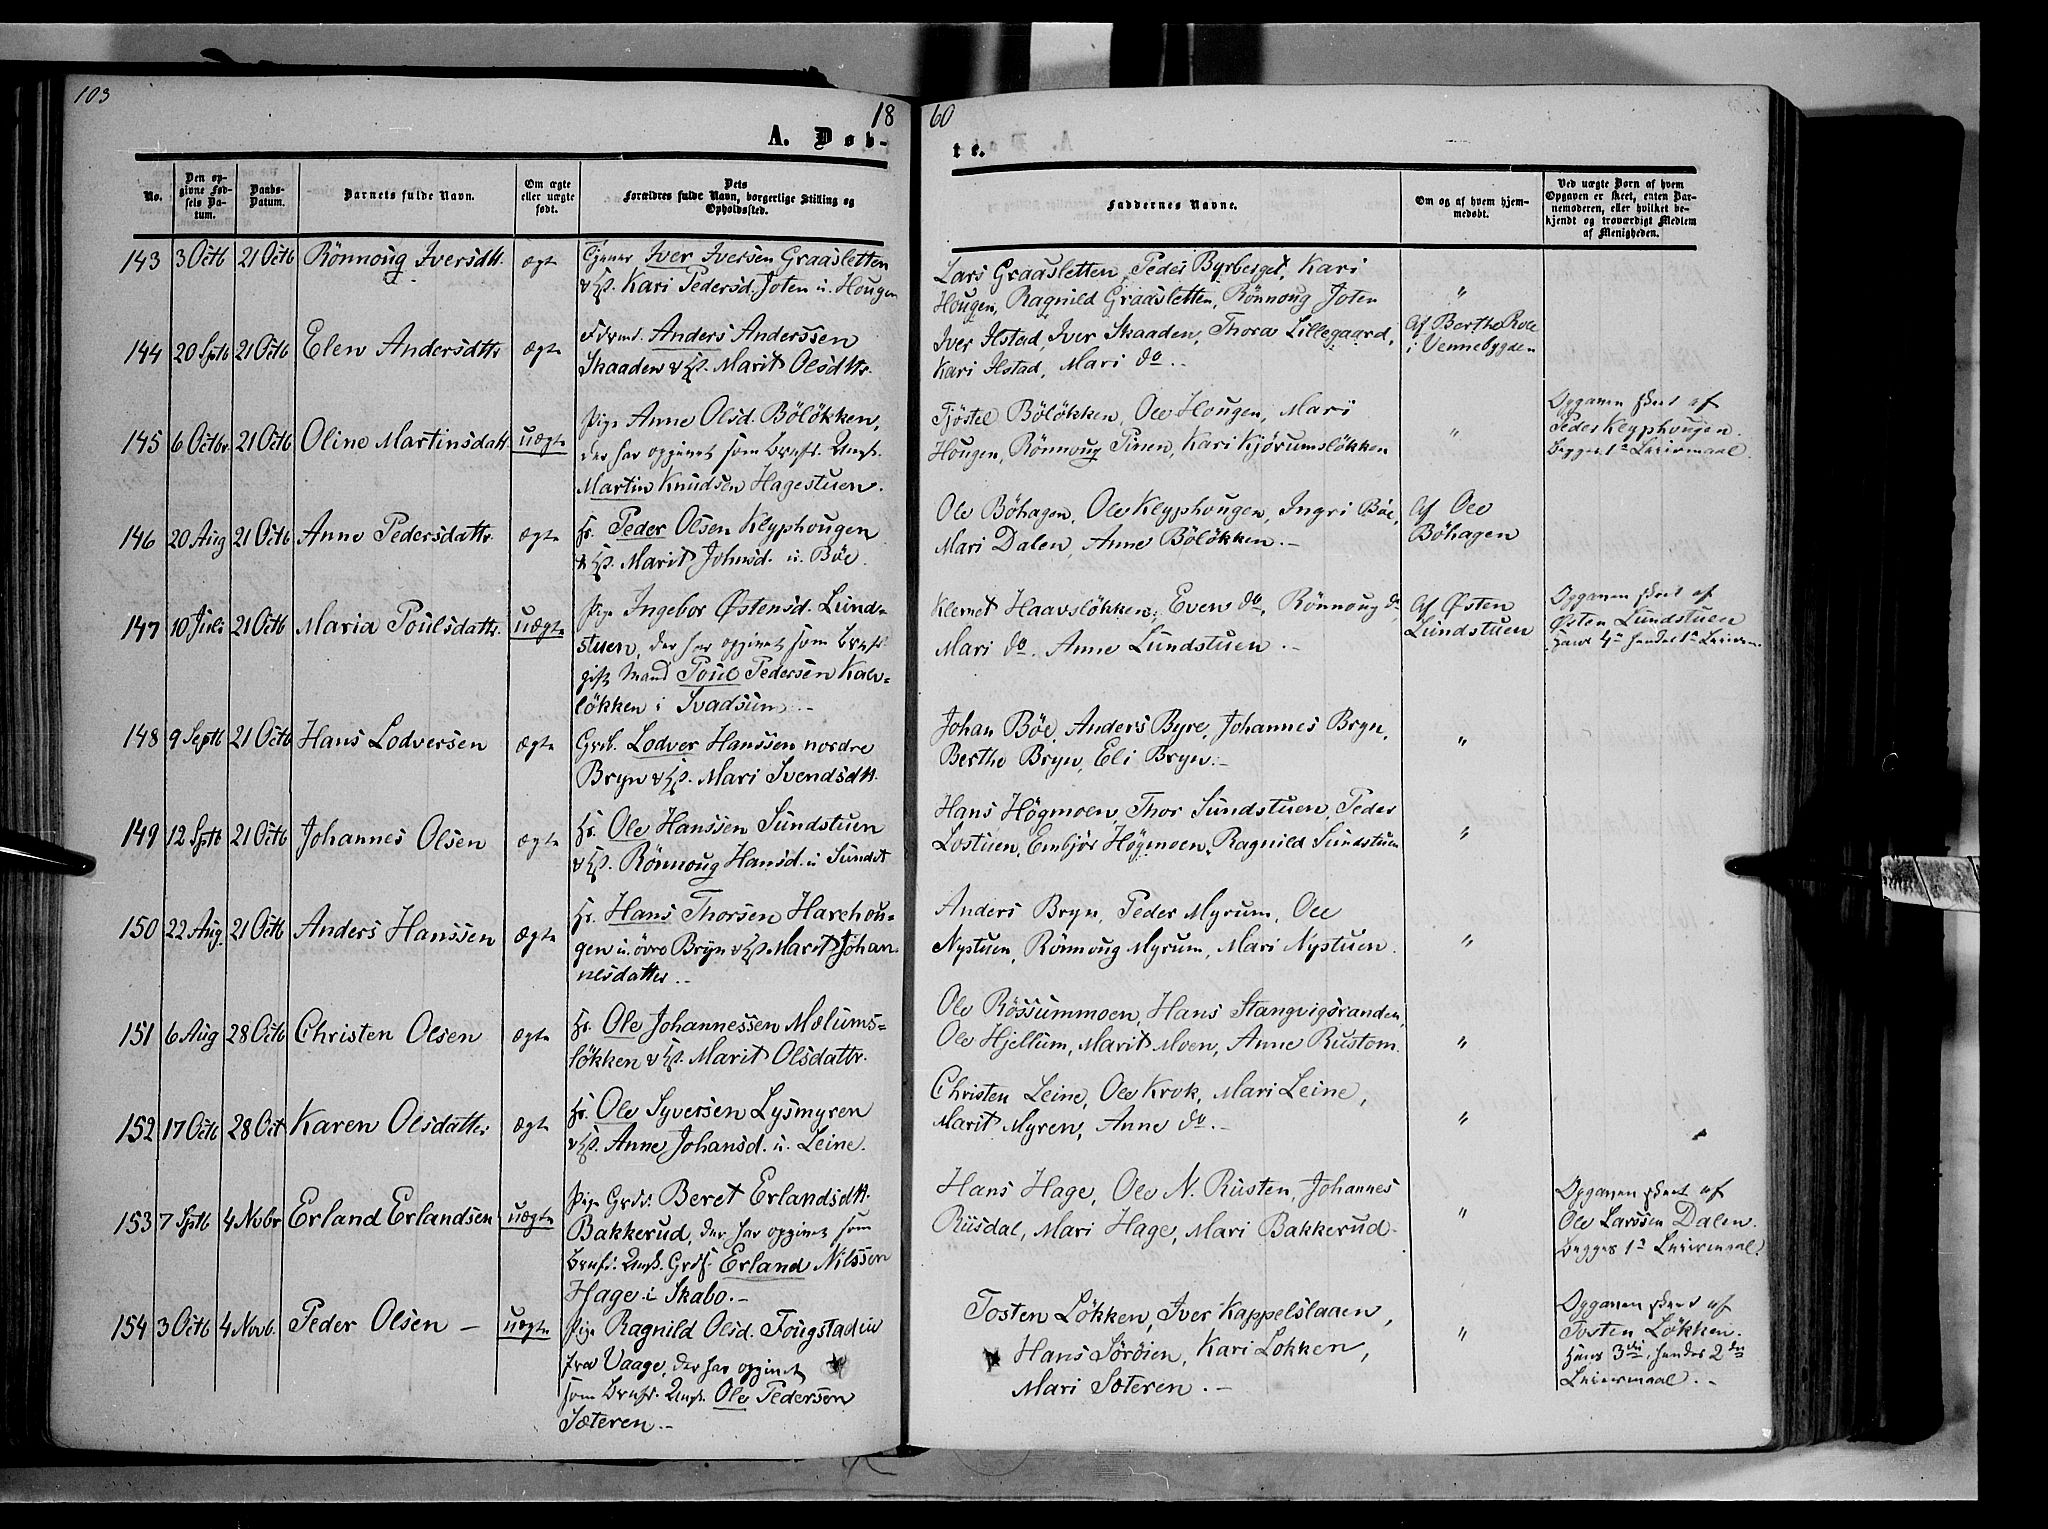 103
18
60
A. Døb-
te.
No.
Den op-
givne Fød-
sels Da-
tum.
Daabs-
Datum.
Barnets fulde Navn.
Om ægte
eller uægte
født.
Dets
Forældres fulde Navn, borgerlige Stilling og
Opholdssted.
Faddernes Navne.
Om og af hvem hjem-
medøbt.
Ved uægte Børn af hvem
Opgaven er skeet, enten Bar-
nemoderen, eller hvilket be-
kjendt og troværdigt Medlem
af Menigheden.
143 3 Octb 21 Octb Rönnoug Iversdtt. ægte
Tjener Iver Iversen Graasletten
Kari Pedersd. Joten u. Hougen
Lars Graasletten, Peder Byrberget, Kari
Hougen, Ragnild Graasletten, Rönnoug Joten
"
144 20 Sptb 21 Octb Elen Andersdttr ægte
Anders Anderssen
Skaaden Marit Olsdttr.
Iver Ilstad, Iver Skaaden, Thora Lillegaard,
Kari Ilstad, Mari do.
Af Berthe
i Vennebygden
145 6 Octbr 21 Octb Oline Martinsdatt. uægte
Pige Anne Olsd. Bölökken,
der har opgivet som Brnfr. Ungk.
Martin Knudsen Hagestuen.
Tjöstel Bölökken, Ole Hougen, Mari
Hougen, Rönnoug Pinen, Kari Kjörumslökken
"
Opgaven skeet af
Peder Klyphougen.
Begges 1ste Leiermaal.
146 20 Aug 21 Octb Anne Pedersdattr. ægte
Hr. Peder Olsen Klyphougen
Marit Johnsd. u. Böe.
Ole Böhagen, Ole Klyphougen, Ingri Böe,
Mari Dalen, Anne Bölökken.
Af Ole
Böhagen
147 10 Juli 21 Octb Maria Poulsdattr. uægte
Pige Ingebor Østensd. Lund-
stuen, der har opgivet som Brnfr.
gift Mand Poul Pedersen Kalv-
lökken i Svadsum
Klemet Haavslökken, Even do, Rönnoug do
Mari do. Anne Lundstuen.
Af Østen
Lundstuen
Opgaven skeet af
Østen Lundstuen
Hans 4de hendes 1ste Leierm.
148 9 Septb 21 Octb Hans Lodversen ægte
Grb. Lodver Hanssen nordre
Bryn Mari Svendsdtt.
Johan Böe, Anders Byre, Johannes Bryn,
Berthe Bryn, Eli Bryn.
"
149 12 Sptb 21 Octb Johannes Olsen ægte
Hr. Ole Hanssen Sundstuen
Rönnoug Hansd. u Sundet
Hans Högmoen, Thor Sundstuen, Peder
Lostuen, Embjör Högmoen, Ragnild Sundstuen
"
150 22 Aug. 21 Octb Anders Hanssen ægte
Hr. Hans Thorsen Harehou-
gen u. övre Bryn Marit Johan-
nesdatter.
Anders Bryn, Peder Myrum, Ole
Nystuen, Rönnoug Myrum, Mari Nystuen.
"
151 6 Aug 28 Octb Christen Olsen ægte
Hr. Ole Johannessen Mælums-
lökken Marit Olsdattr.
Ole Rössummoen, Hans Stangvigsranden,
Ole Hjellum, Marit Moen, Anne Rustom.
"
152 17 Octb 28 Oct Karen Olsdatter ægte
Hr. Ole Syversen Lysmyren
Anne Johansd. u. Leine.
Christen Leine, Ole Krok, Mari Leine,
Marit Myren, Anne do.
"
153 7 Sptb 4 Novbr Erland Erlandsen uægte
Pige Grdd. Beret Erlandsdtt.
Bakkerud, der har opgivet som
Brnfr. Ungk. Grds. Erland Nilssen
Hage i Skabo.
Hans Hage, Ole N. Rusten, Johannes
Riisdal, Mari Hage, Mari Bakkerud.
"
Opgaven skeet af
Ole Larssen Dalen.
Begges 1ste Leiermaal.
154 3 Octb 4 Novb. Peder Olsen uægte
Pige Ragnild Olsd. Fougstadin
fra Vaage, der har opgivet
som Brnfr. Ungk. Ole Pedersen
Sæteren.
Tosten Lökken, Iver Kappelslaaen,
Hans Söröien, Kari Lökken,
Mari Sæteren.
"
Opgaven skeet af
Tosten Lökken.
Hans 3die, hendes 2det
Leiermaal.